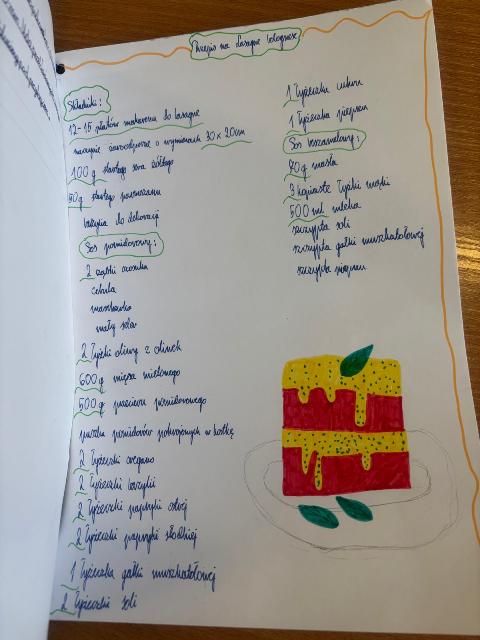 Przepis na Lasagne bolognese
Składniki:
12-15 płatów makaronu do lasagne
naczynie żaroodporne o wymiarach 30 x 20cm
100g startego sera żółtego
50g startego parmezanu
bazylia do dekoracji
Sos pomidorowy:
2 ząbki czosnku
cebula
marchewka
mały seler
2 łyżki oliwy z oliwek
600g mięsa mielonego
500g przecieru pomidorowego
puszka pomidorów pokrojonych w kostkę
2 łyżeczki oregano
2 łyżeczki bazylii
2 łyżeczki papryki ostrej
2 łyżeczki papryki słodkiej
1 łyżeczka gałki muszkatołowej
2 łyżeczki soli
1 łyżeczka cukru
1 łyżeczka pieprzu
Sos beszamelowy:
80g masła
3 kopiaste łyżki mąki
500 ml mleka
szczypta soli
szczypta gałki muszkatołowej
szczypta pieprzu